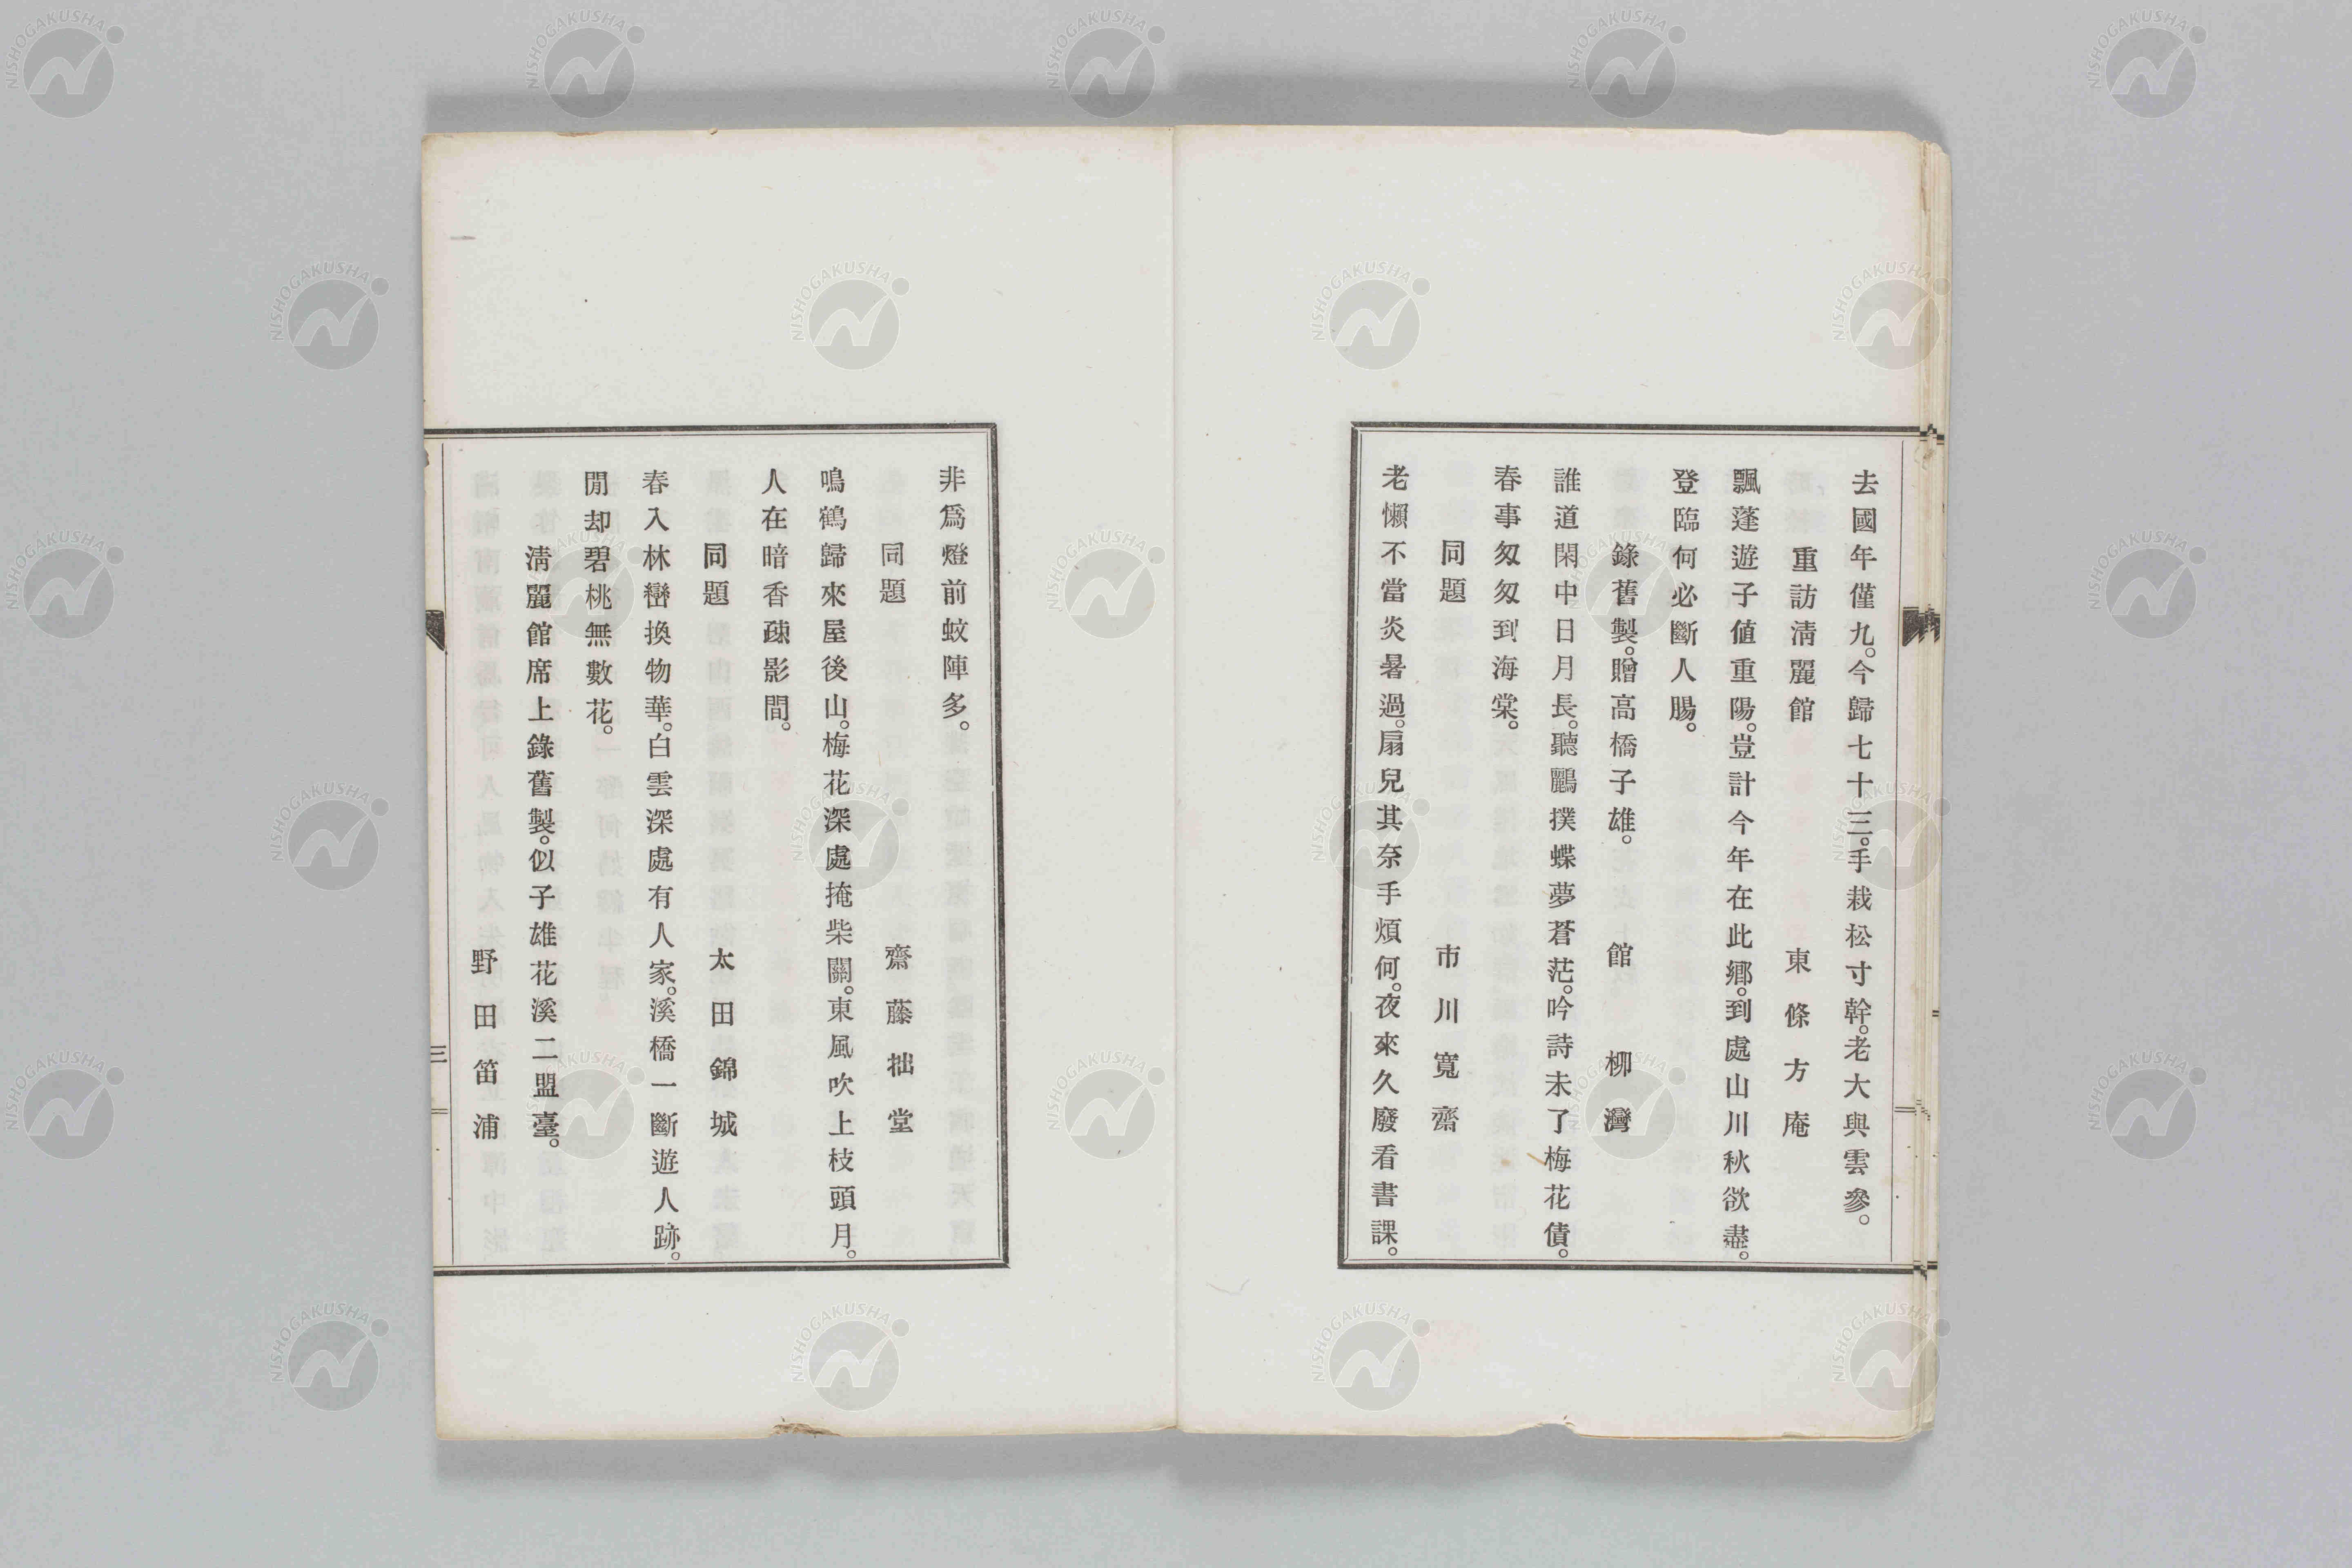 去國年僅九。今歸七十三。手栽松寸幹。老大與雲參。
重訪淸麗館 東條方庵
飄蓬遊子値重陽。豈計今年在此鄉。到處山川秋欲盡。
登臨何必斷人腸。
錄舊製。贈高橋子雄。 館柳灣
誰道閑中日月長。聽鸝撲蝶夢蒼茫。吟詩未了梅花債。
春事匆匆到海棠。
同題 市川寬齋
老懶不當炎暑過。扇兒其奈手煩何。夜來久廢看書課。
非爲燈前蚊陣多。
同題 齋藤拙堂
鳴鶴歸來屋後山。梅花深處掩柴關。東風吹上枝頭月。
人在暗香疎影間。
同題 太田錦城
春入林巒換物華。白雲深處有人家。溪橋一斷遊人跡。
閒却碧桃無數花。
淸麗館席上錄舊製。似子雄花溪二盟臺。
野田笛浦
三